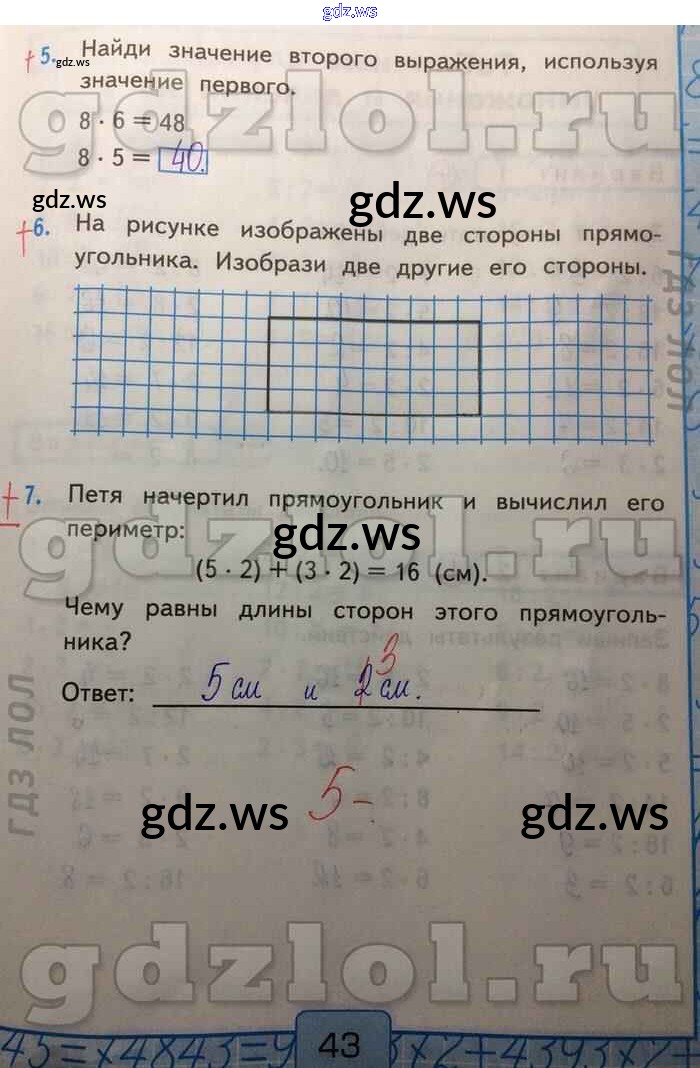 gdz.ws
+ 5. Найди значение второго выражения, используя
gdz.ws
значение первого.
gdzlol.ru
8 · 6 = 48
8 · 5 = 40.
gdz.ws
gdz.ws
+ 6. На рисунке изображены две стороны прямо-
угольника. Изобрази две другие его стороны.
ГДЗ ЛОЛ
+ 7. Петя начертил прямоугольник и вычислил его
периметр:
gdzlol.ru
gdz.ws
(5 · 2) + (3 · 2) = 16 (см).
Чему равны длины сторон этого прямоуголь-
ника?
3
Ответ: 5 см и 2 см.
ГДЗ ЛОЛ
5-
gdz.ws
gdz.ws
gdzlol.ru
43